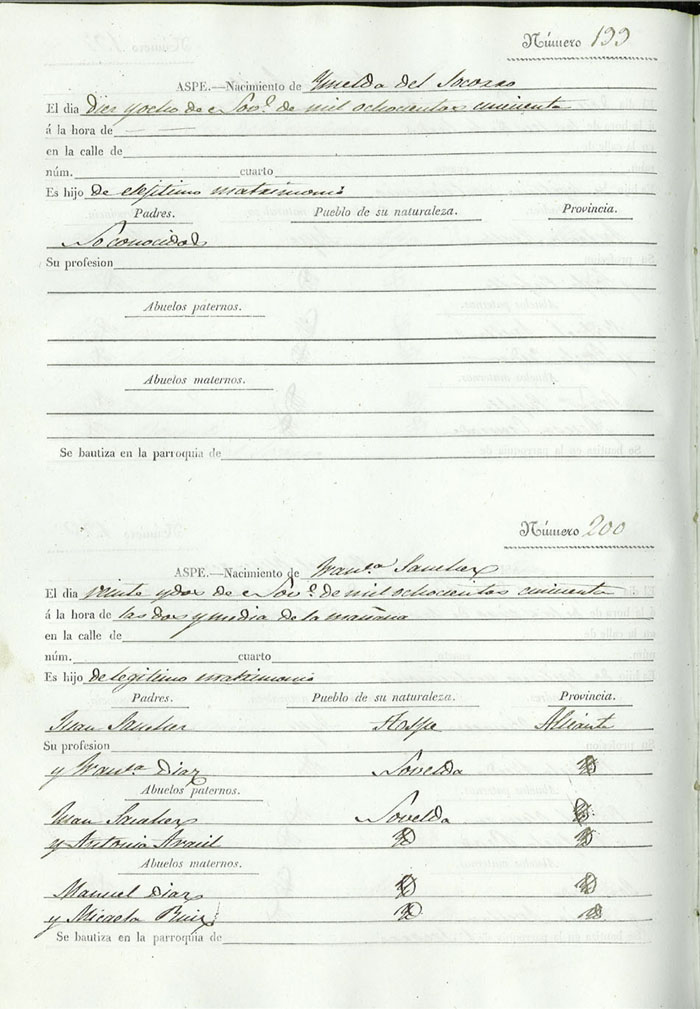 Número 199
ASPE.—Nacimiento de Ymelda del Socorro
El dia Diez y ocho de Nov.e de mil ochocientos cincuenta
á la hora de
en la calle de
núm. cuarto
Es hijo de elejitimo matrimonio
Padres. Pueblo de su naturaleza. Provincia.
No conocidos
Su profesion
Abuelos paternos.
Abuelos maternos.
Se bautiza en la parroquia de
Número 200
ASPE.—Nacimiento de Fran.ca Sanchez
El dia veinte y dos de Nov.e de mil ochocientos cincuenta
á la hora de las dos y media de la mañana
en la calle de
núm. cuarto
Es hijo de legitimo matrimonio
Padres. Pueblo de su naturaleza. Provincia.
Juan Sanchez Aspe Alicante
Su profesion
y Fran.ca Diaz Novelda
Abuelos paternos.
Juan Sanchez Novelda
y Antonia
Abuelos maternos.
Manuel Diaz
y Micaela Ruiz
Se bautiza en la parroquia de